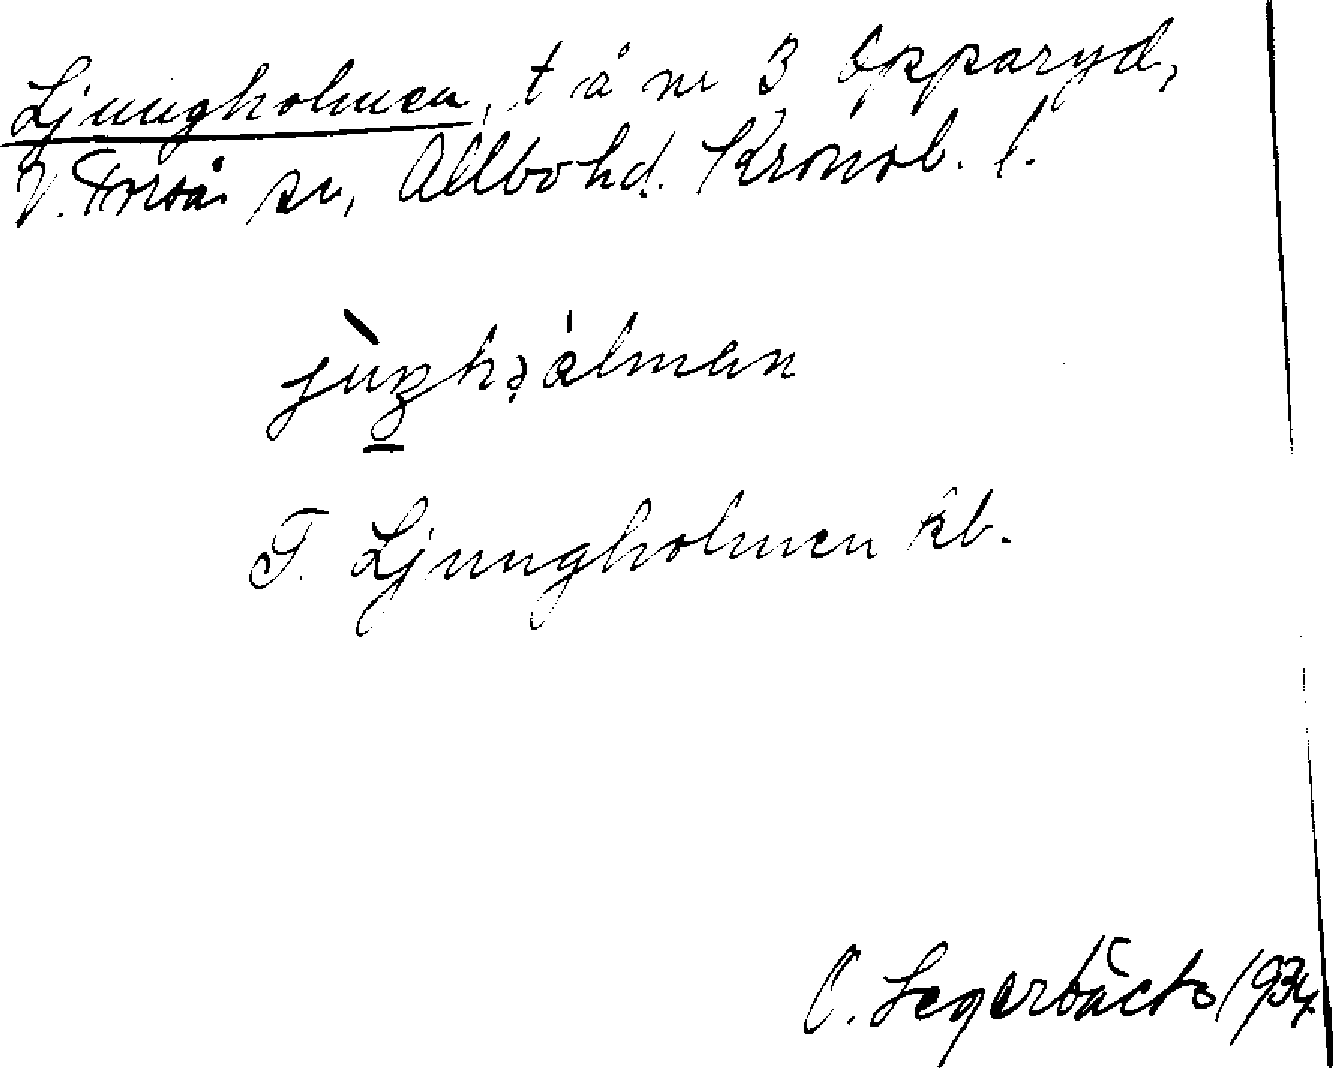 Ljungholmen, t å nr 3 Opparyd,
V. Torsås sn, Allbo hd. Kronob. l.
T. Ljungholmen kb.
O. Segerbäck 1934.